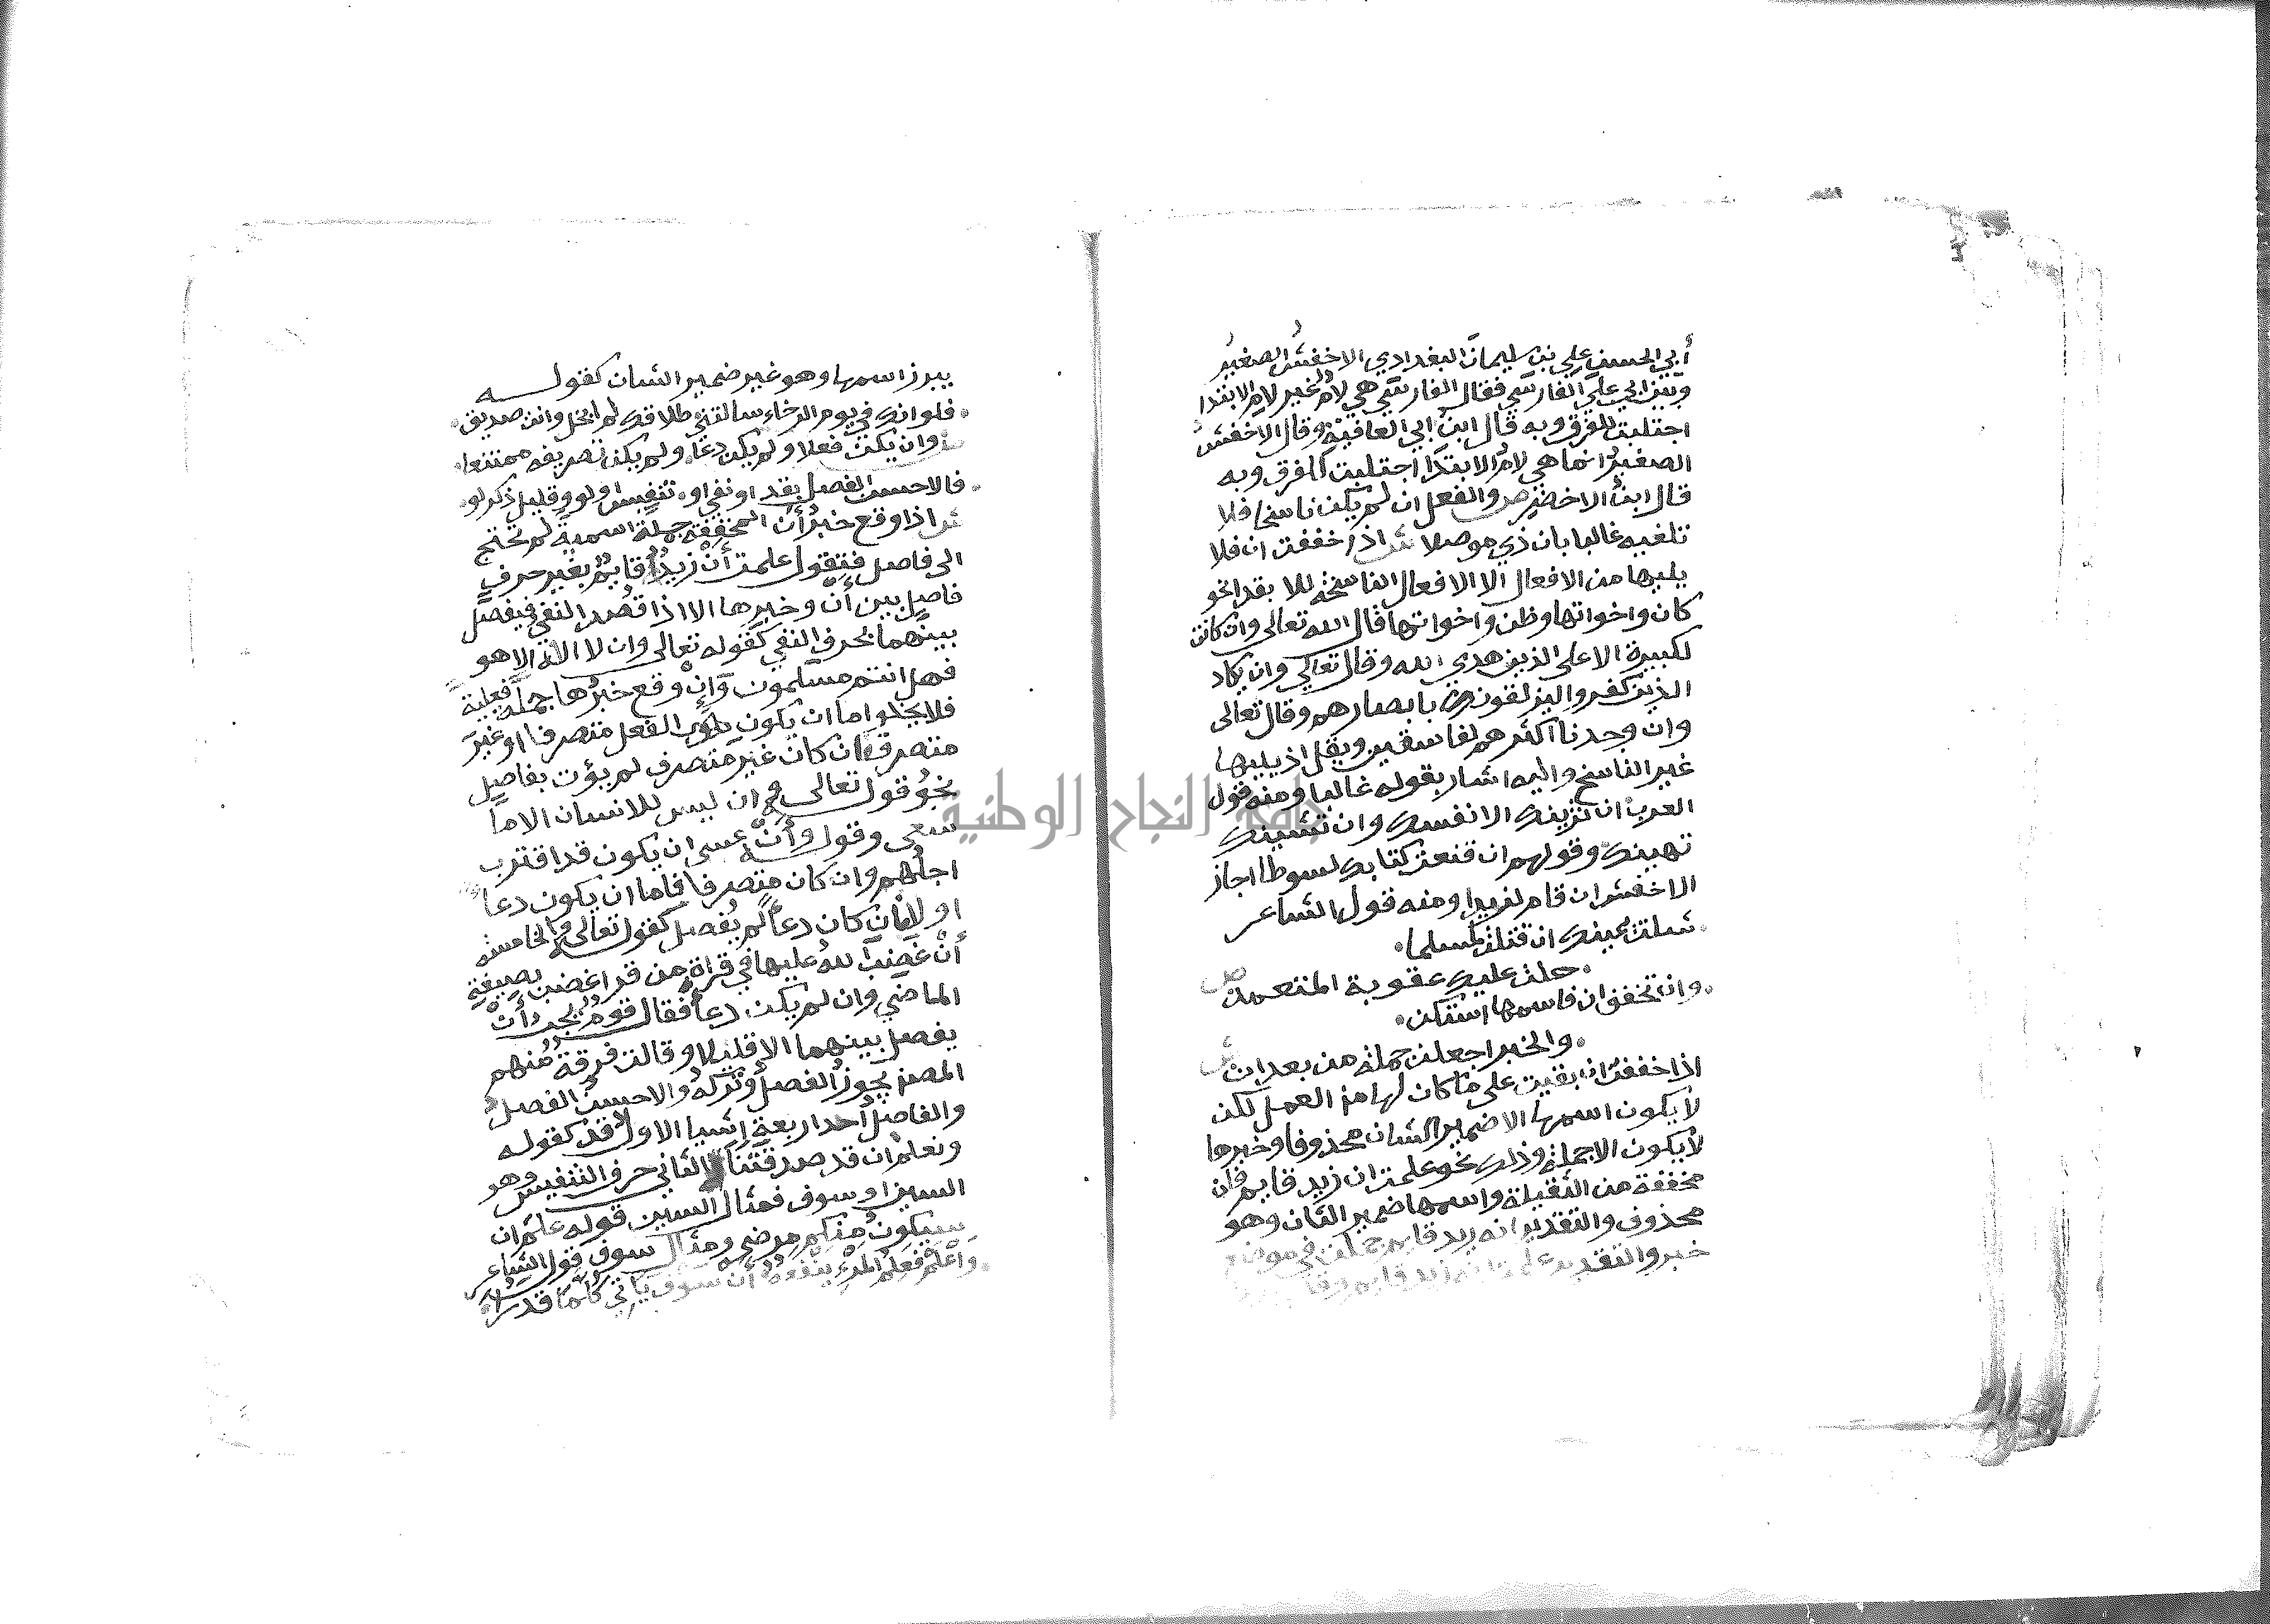 أبي الحسن علي بن سليمان البغدادي الاخفش الصغير
وبين ابي علي الفارسي فقال الفارسي هي لام غير لام الابتدا
اجتلبت للفرق وبه قال ابن ابي العافية وقال الاخفش
الصغير انما هي لام الابتدا اجتلبت للفرق وبه
قال ابن الاخضر ص والفعل ان لم يكن ناسخا فلا
تلفيه غالبا بان ذي موصلا ش اذا خففت ان فلا
يليها من الافعال الا الافعال الناسخة للابتدا نحو
كان واخواتها وظن واخواتها قال الله تعالى وان كانت
لكبيرة الا على الذين هدى الله وقال تعالى وان يكاد
الذين كفروا ليزلقونك بابصارهم وقال تعالى
وان وجدنا اكثرهم لفاسقين ويقل اذ يليها
غير الناسخ واليه اشار بقوله غالبا ومنه قول
العرب ان تزينك الا نفسك وان تشينك
تهينك وقولهم ان قنعت كتابك لسوطا اجاز
الاخفش ان قام لزيد ومنه قول الشاعر
شلت يمينك ان قتلت لمسلما
حلت عليك عقوبة المتعمد ص
وان تخفف ان فاسمها استكن
والخبر اجعلن جملة من بعد ان ش
اذا خففت ان بقيت على ما كان لها من العمل لكن
لا يكون اسمها الا ضمير الشان محذوفا وخبرها
لا يكون الا جملة وذلك نحو علمت ان زيد قايم فان
مخففة من الثقيلة واسمها ضمير الشان وهو
محذوف والتقدير انه زيد قايم جملة في موضع
خبر والتقدير علمت انه زيد قايم وقد
يبرز اسمها وهو غير ضمير الشان كقوله
فلو انك في يوم الرخاء سالتني طلاقك لم ابخل وانت صديق
وان يكن فعلا ولم يكن دعا ولم يكن تصريفه ممتنعا
فالاحسن الفصل بقد او نفي او تنفيس او لو وقليل ذكر لو
ش اذا وقع خبر أن المخففة جملة اسمية لم تحتج
الى فاصل فتقول علمت أن زيد قايم بغير حرف
فاصل بين أن وخبرها الا اذا قصد النفي فيفصل
بينهما بحرف النفي كقوله تعالى وان لا اله الا هو
فهل انتم مسلمون وان وقع خبرها جملة فعلية
فلا يخلو اما ان يكون الفعل متصرفا او غير
متصرف فان كان غير متصرف لم يؤت بفاصل
نحو قوله تعالى وان ليس للانسان الا ما
سعى وقوله وأن عسى ان يكون قد اقترب
اجلهم وان كان متصرفا فاما ان يكون دعا
او لا فان كان دعا لم يفصل كقوله تعالى والخامسة
أن غضب الله عليها في قراة من قرا غضب بصيغة
الماضي وان لم يكن دعا فقال قوم يجب أن
يفصل بينهما الا قليلا وقالت فرقة منهم
المص يجوز الفصل وتركه والاحسن الفصل
والفاصل احد اربعة اشيا الاول قد كقوله
ونعلم ان قد صدقتنا الثاني حرف التنفيس وهو
السين او سوف فمثال السين قوله علم ان
سيكون منكم مرضى ومثال سوف قول الشاعر
واعلم فعلم المرء ينفعه أن سوف ياتي كلما قدرا
جامعة النجاح الوطنية